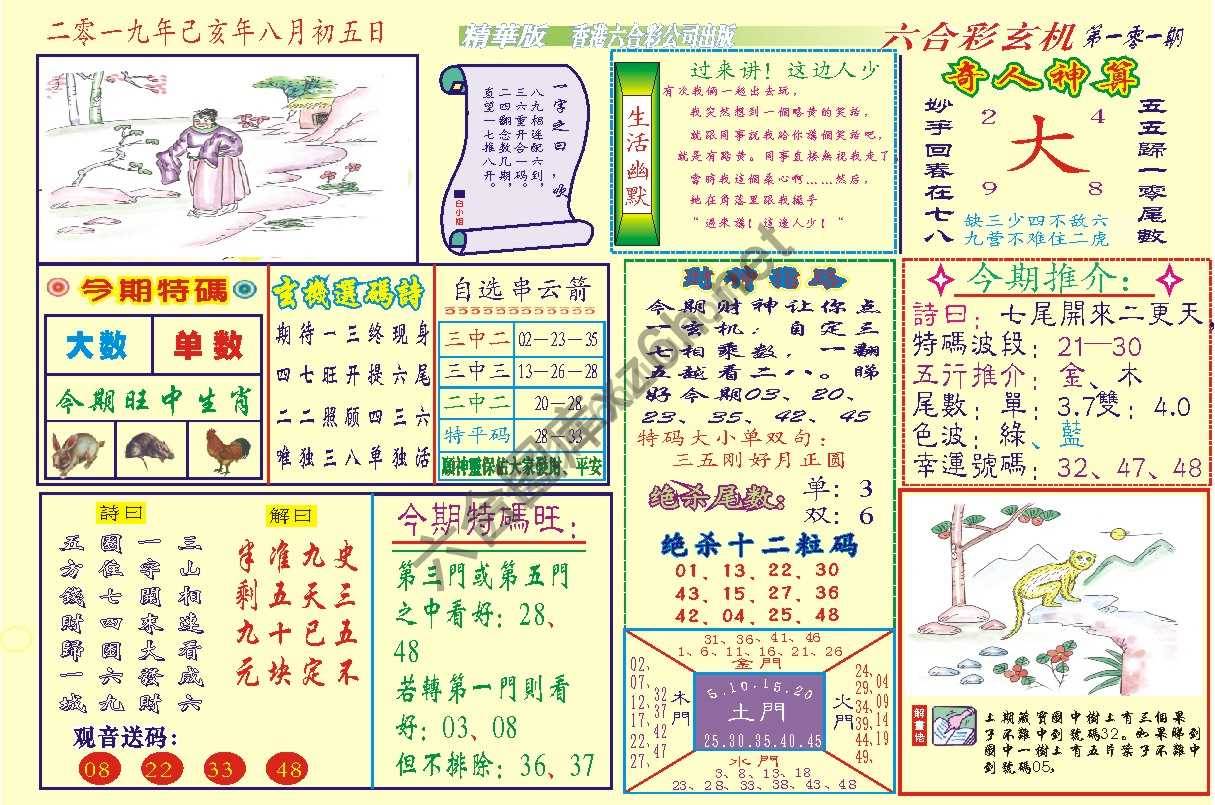 二零一九年己亥年八月初五日
精華版 香港六合彩公司出版
六合彩玄机 第一零一期
一字之曰:吹
八九相连配六到,
三六重开合一码,
二四翻念数几期。
直望一七推八开。
白小姐
生活幽默
过来讲!这边人少
有次我俩一起出去玩,
我突然想到一個略黄的笑话,
就跟同事説我给你講個笑话吧,
就是有點黄。同事直接無視我走了
當時我這個桑心啊……然后,
她在角落里跟我搖手
"過來講!這邊人少!"
奇人神算
妙手回春在七八
2 4
大
9 8
五五歸一零尾數
缺三少四不敌六
九营不难住二虎
今期特碼
大数 单数
今期旺中生肖
玄機選碼詩
期待一三终现身
四七旺开提六尾
二二照顾四三六
唯独三八单独活
自选串云箭
三中二 02—23—35
三中三 13—26—28
二中二 20—28
特平码 28—33
願神靈保佑大家發財、平安
今期财神让你点
一玄机,自定三
七相乘数,一翻
五越看二八。睇
好今期03、20、
23、35、42、45
特码大小单双句:
三五刚好月正圆
绝杀尾数: 单: 3
双: 6
绝杀十二粒码
01、13、22、30
43、15、27、36
42、04、25、48
今期推介:
詩曰: 七尾開來二更天,
特碼波段: 21—30
五行推介: 金、木
尾數: 單: 3.7雙: 4.0
色波: 綠、藍
幸運號碼: 32、47、48
詩曰
三山相連看成六
一字開來大發財
圍住七四圍六九
五方錢財歸一城
解曰
史三五不
九天已定
准五十块
半剩九元
观音送码:
08 22 33 48
今期特碼旺:
第三門或第五門
之中看好: 28、
48
若轉第一門則看
好: 03、08
但不排除: 36、37
31、36、41、46
1、6、11、16、21、26
金門
02、07、12、17、22、27、
32、37、42、47
木門
5.10.15.20
土門
25.30.35.40.45
火門
24、29、34、39、44、49、
04、09、14、19
水門
3、8、13、18
23、28、33、38、43、48
解畫悟
上期藏寶圖中樹上有三個果
子不難中到號碼32。如果睇到
圖中一樹上有五片葉子不難中
到號碼05,
六合图库xz6hc.net